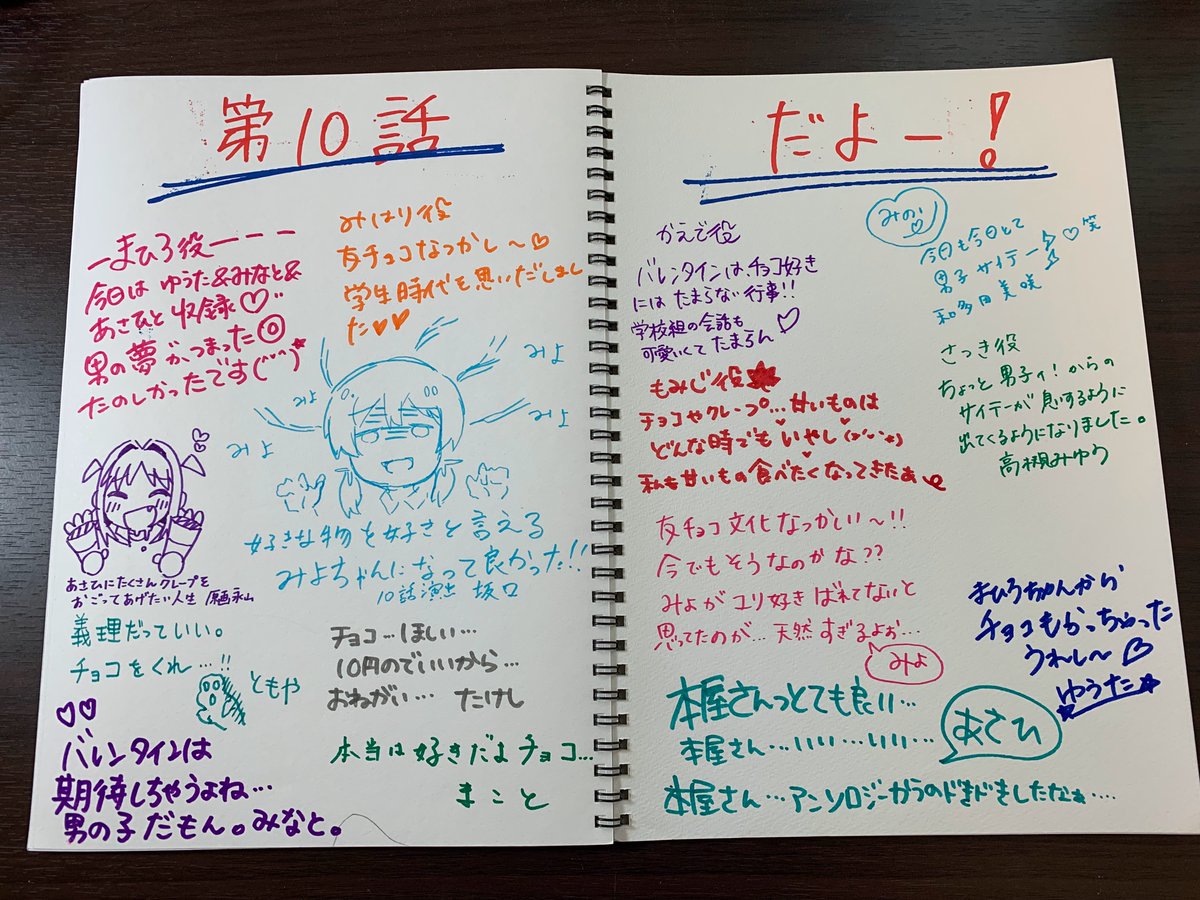 第10話
まひろ役ーーー
今日はゆうた&みなと&
あさひと収録♡
男の夢がつまった回
たのしかったです
みはり役
友チョコなつかし〜♡
学生時代を思いだしまし
た♡♡
みよ
みよ
みよ
みよ
好きな物を好きと言える
みよちゃんになって良かった!!
10話演出 坂口
あさひにたくさんクレープを
おごってあげたい人生 原画 永山
義理だっていい。
チョコをくれ…!!
ともや
チョコ…ほしい…
10円のでいいから…
おねがい… たけし
バレンタインは
期待しちゃうよね…
男の子だもん。みなと。
本当は好きだよチョコ…
まこと
だよー!
かえで役
バレンタインは、チョコ好き
にはたまらない行事!!
学校組の会話も
可愛いくてたまらん♡
みのり
今日も今日とて
男子サイテー♡笑
和多田美咲
もみじ役
チョコやクレープ…甘いものは
どんな時でもいやし
私も甘いもの食べたくなってきたぁ
さつき役
ちょっと男子ィ!からの
サイテーが息するように
出てくるようになりました。
高槻みゆう
友チョコ文化なつかしい〜!!
今でもそうなのかな??
みよがユリ好きばれてないと
思ってたのが…天然すぎるよぉ…
みよ
まひろちゃんから
チョコもらっちゃった
うれし〜♡
ゆうた
本屋さんっとても良い…
本屋さん…いい…いい…
あさひ
本屋さん…アンソロジーかうのドキドキしたなぁ…